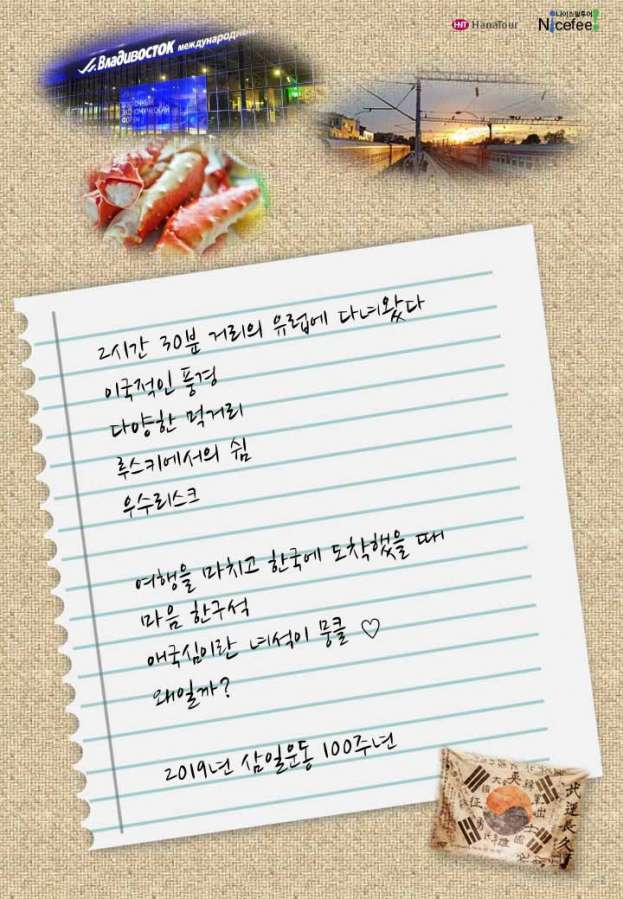 HNT HanaTour
나이스필투어
Nicefee!
Владивосток международн
2시간 30분 거리의 유럽에 다녀왔다
이국적인 풍경
다양한 먹거리
루스키에서의 쉼
우수리스크
여행을 마치고 한국에 도착했을 때
마음 한구석
애국심이란 녀석이 뭉클 ♡
왜일까?
2019년 삼일운동 100주년
武運長久